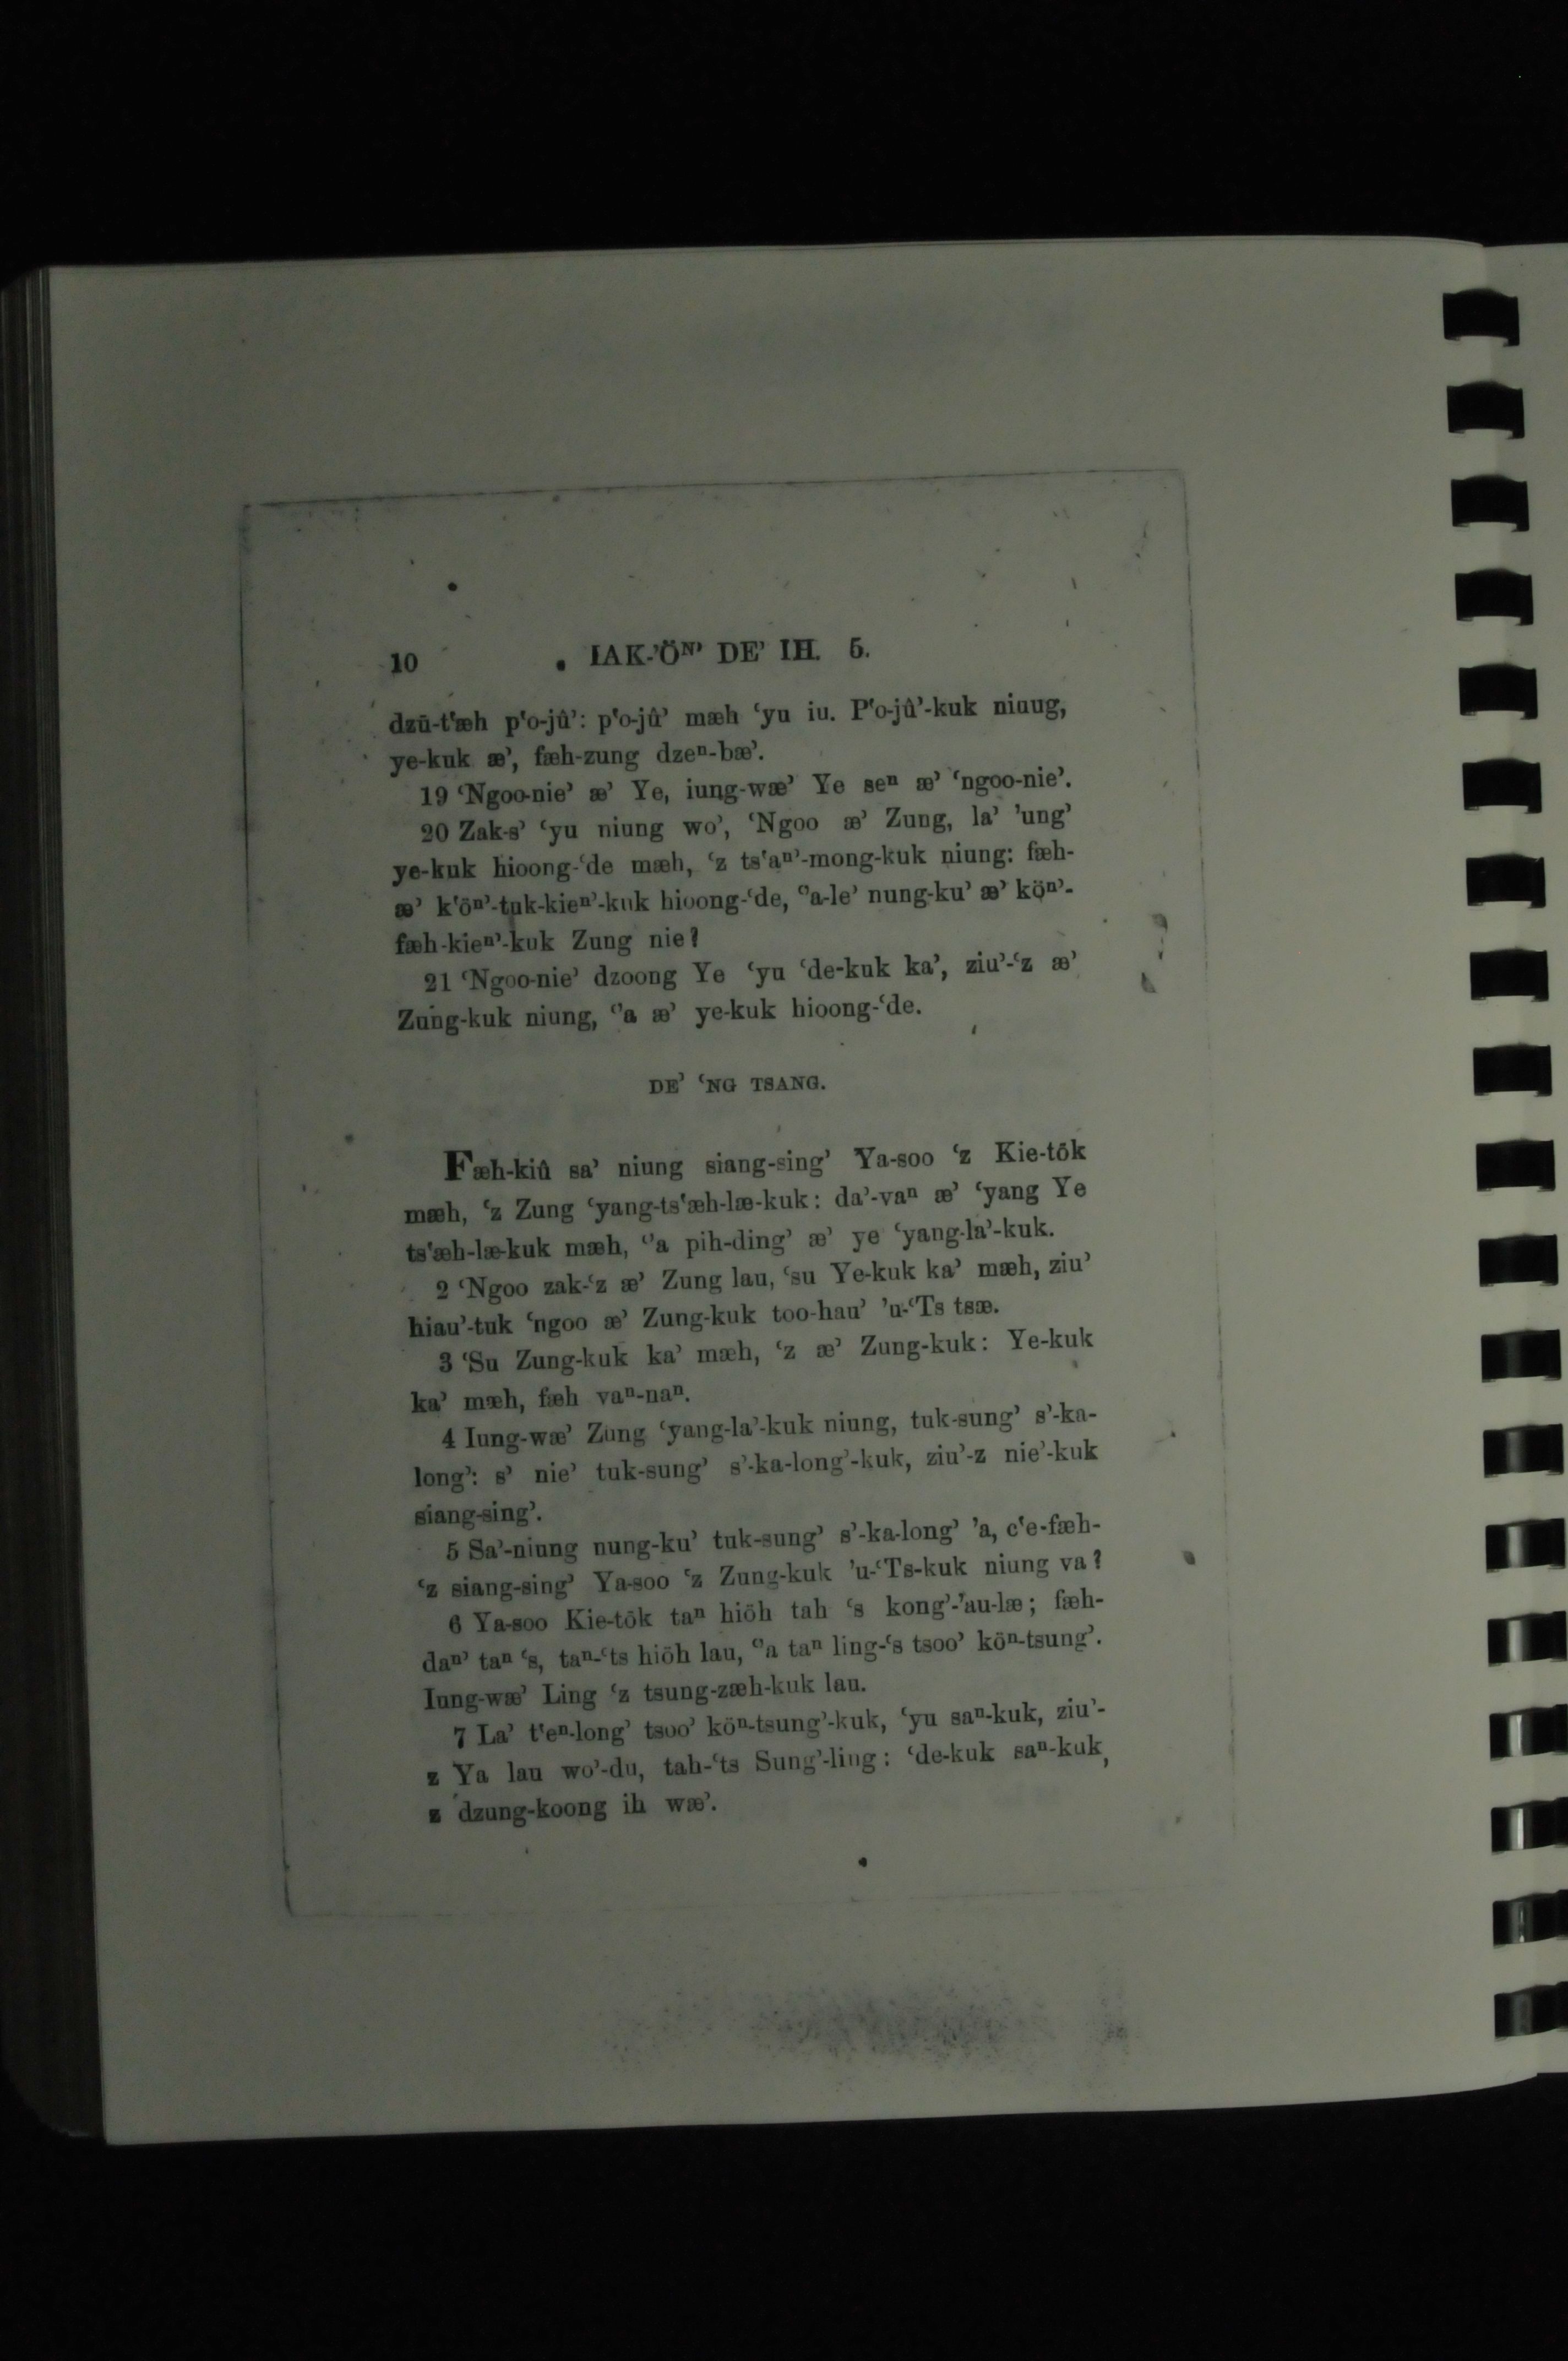 10 IAK-’ÖN’ DE’ IH. 5.
dzū-t‘æh p‘o-jû’: p‘o-jû’ mæh ‘yu iu. P‘o-jû’-kuk niung,
ye-kuk æ’, fæh-zung dzeⁿ-bæ’.
19 ‘Ngoo-nie’ æ’ Ye, iung-wæ’ Ye seⁿ æ’ ‘ngoo-nie’.
20 Zak-s’ ‘yu niung wo’, ‘Ngoo æ’ Zung, la’ ’ung’
ye-kuk hioong-‘de mæh, ‘z ts‘aⁿ’-mong-kuk niung: fæh-
æ’ k‘öⁿ’-tuk-kieⁿ’-kuk hioong-‘de, ‘’a-le’ nung-ku’ æ’ köⁿ’-
fæh-kieⁿ’-kuk Zung nie?
21 ‘Ngoo-nie’ dzoong Ye ‘yu ‘de-kuk ka’, ziu’-‘z æ’
Zung-kuk niung, ‘’a æ’ ye-kuk hioong-‘de.
DE’ ‘NG TSANG.
Fæh-kiû sa’ niung siang-sing’ Ya-soo ‘z Kie-tök
mæh, ‘z Zung ‘yang-ts‘æh-læ-kuk: da’-vaⁿ æ’ ‘yang Ye
ts‘æh-læ-kuk mæh, ‘’a pih-ding’ æ’ ye ‘yang-la’-kuk.
2 ‘Ngoo zak-‘z æ’ Zung lau, ‘su Ye-kuk ka’ mæh, ziu’
hiau’-tuk ‘ngoo æ’ Zung-kuk too-hau’ ’u-‘Ts tsæ.
3 ‘Su Zung-kuk ka’ mæh, ‘z æ’ Zung-kuk: Ye-kuk
ka’ mæh, fæh vaⁿ-naⁿ.
4 Iung-wæ’ Zung ‘yang-la’-kuk niung, tuk-sung’ s’-ka-
long’: s’ nie’ tuk-sung’ s’-ka-long’-kuk, ziu’-z nie’-kuk
siang-sing’.
5 Sa’-niung nung-ku’ tuk-sung’ s’-ka-long’ ’a, c‘e-fæh-
‘z siang-sing’ Ya-soo ‘z Zung-kuk ’u-‘Ts-kuk niung va?
6 Ya-soo Kie-tök taⁿ hiöh tah ‘s kong’-’au-læ; fæh-
daⁿ’ taⁿ ‘s, taⁿ-‘ts hiöh lau, ‘’a taⁿ ling-‘s tsoo’ köⁿ-tsung’.
Iung-wæ’ Ling ‘z tsung-zæh-kuk lau.
7 La’ t‘eⁿ-long’ tsoo’ köⁿ-tsung’-kuk, ‘yu saⁿ-kuk, ziu’-
z Ya lau wo’-du, tah-‘ts Sung’-ling: ‘de-kuk saⁿ-kuk,
z dzung-koong ih wæ’.